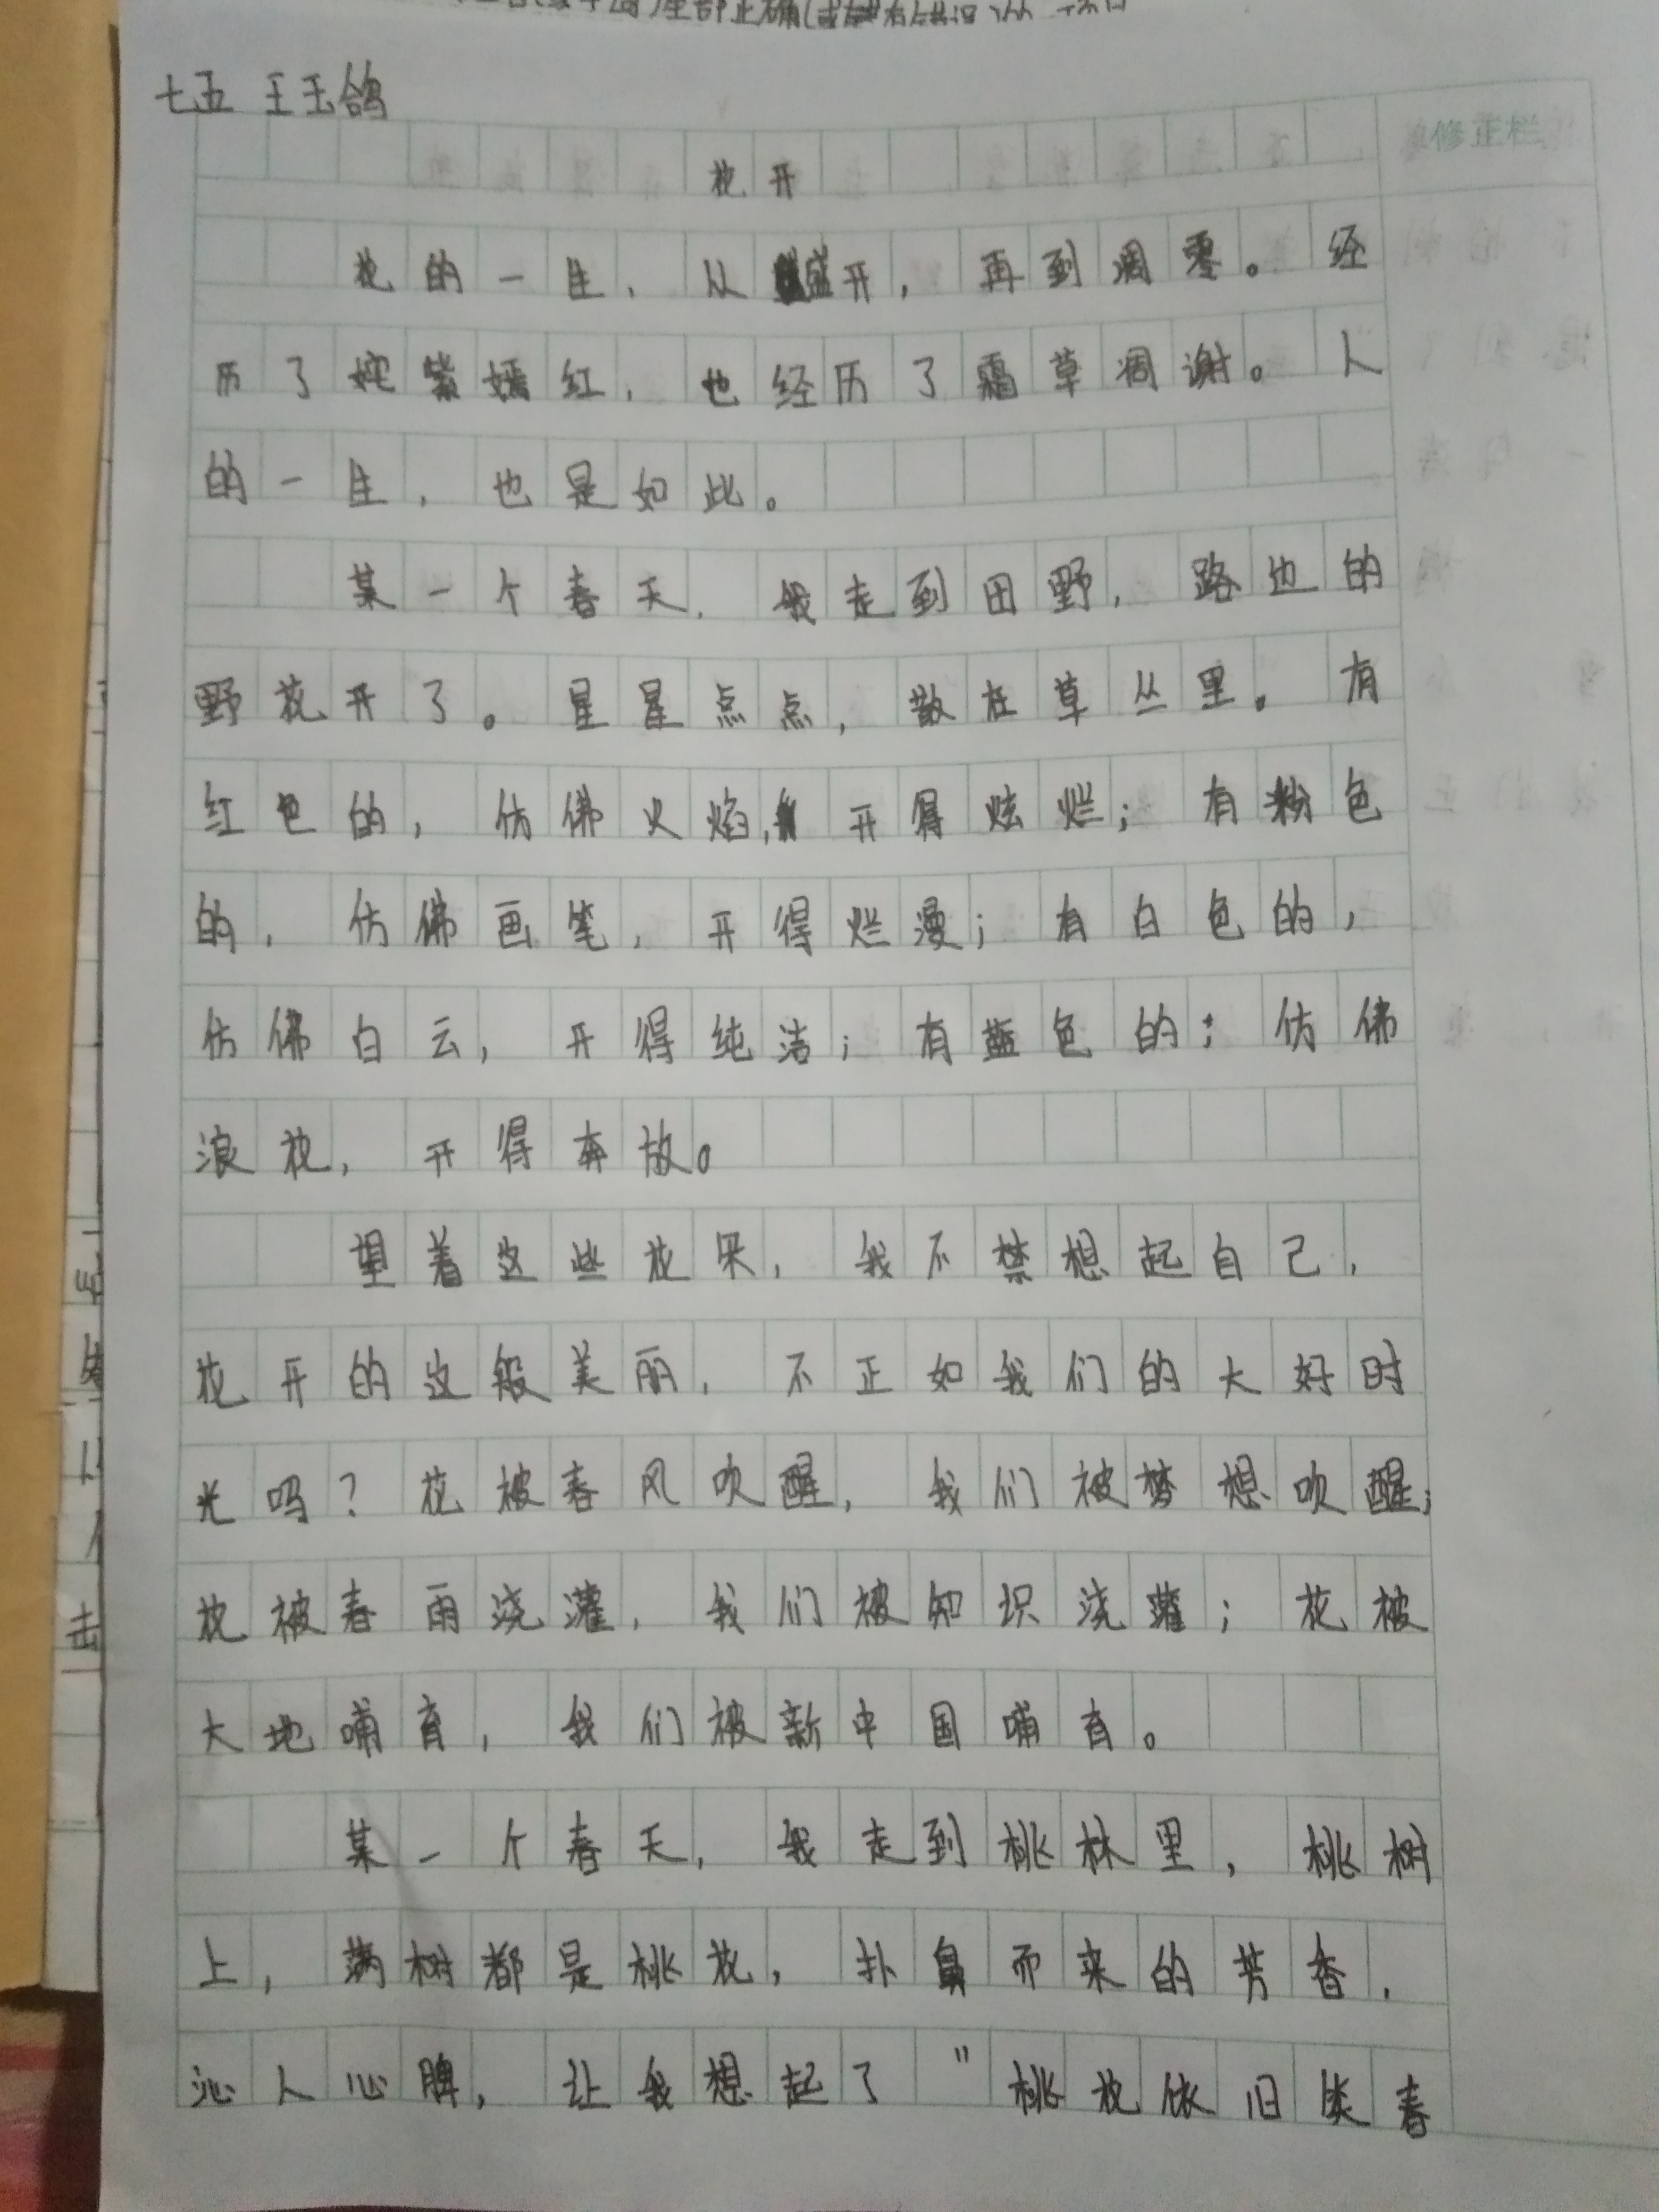 七五 王玉鸽
修正栏
花开
花的一生，从盛开，再到凋零。经
历了姹紫嫣红，也经历了霜草凋谢。人
的一生，也是如此。
某一个春天，我走到田野，路边的
野花开了。星星点点，散在草丛里。有
红色的，仿佛火焰，开得炫烂；有粉色
的，仿佛画笔，开得烂漫；有白色的，
仿佛白云，开得纯洁；有蓝色的；仿佛
浪花，开得奔放。
望着这些花朵，我不禁想起自己，
花开的这般美丽，不正如我们的大好时
光吗？花被春风吹醒，我们被梦想吹醒；
花被春雨浇灌，我们被知识浇灌；花被
大地哺育，我们被新中国哺育。
某一个春天，我走到桃林里，桃树
上，满树都是桃花，扑鼻而来的芳香，
沁人心脾，让我想起了"桃花依旧笑春